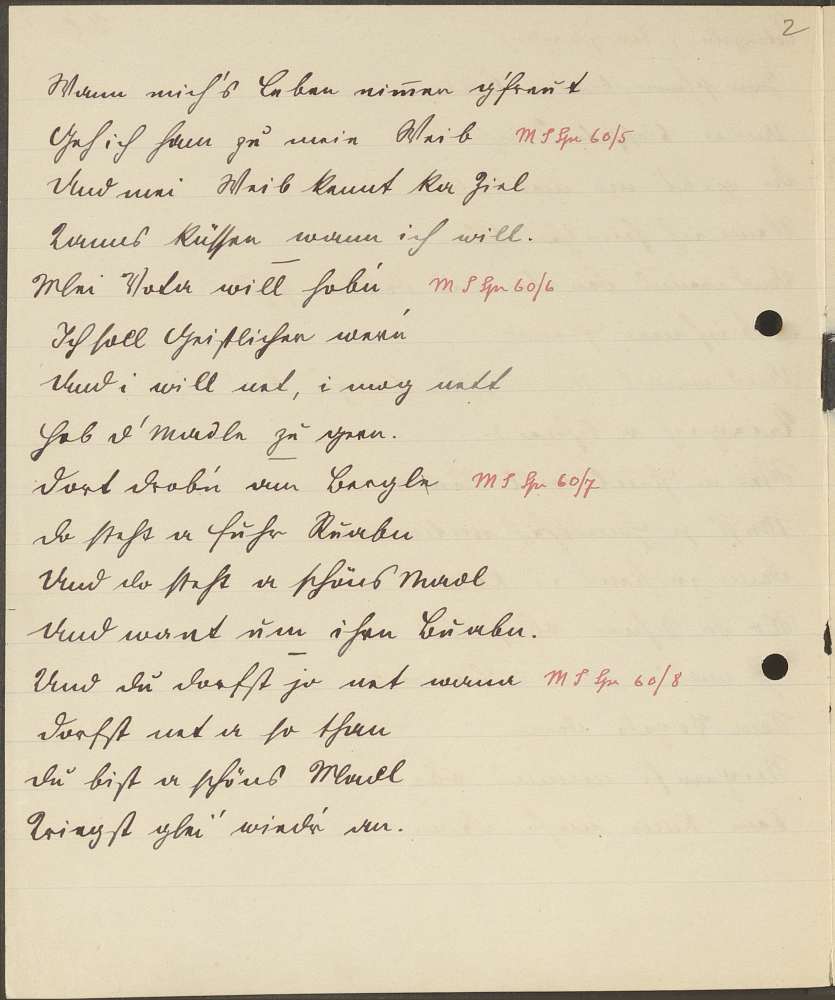 2
Wann mich's Leben nimmer g'freut
Geh ich ham zu mein Weib M S Spr 60/5
Und mei Weib kennt ka Ziel
Kanns küssen wann ich will.
Mei Vota will hobn M S Spr 60/6
Ich soll Geistlicher wern
Und i will net, i mog nett
Hob d' Madle zu gern.
Dort drobn am Bergle M S Spr 60/7
do steht a Fuhr Ruabn
Und do steht a schöns Madl
Und want um ihrn Buabn.
Und du darfst jo net wana M S Spr 60/8
Darfst net a so than
Du bist a schöns Madl
Kriegst glei' wiedr an.